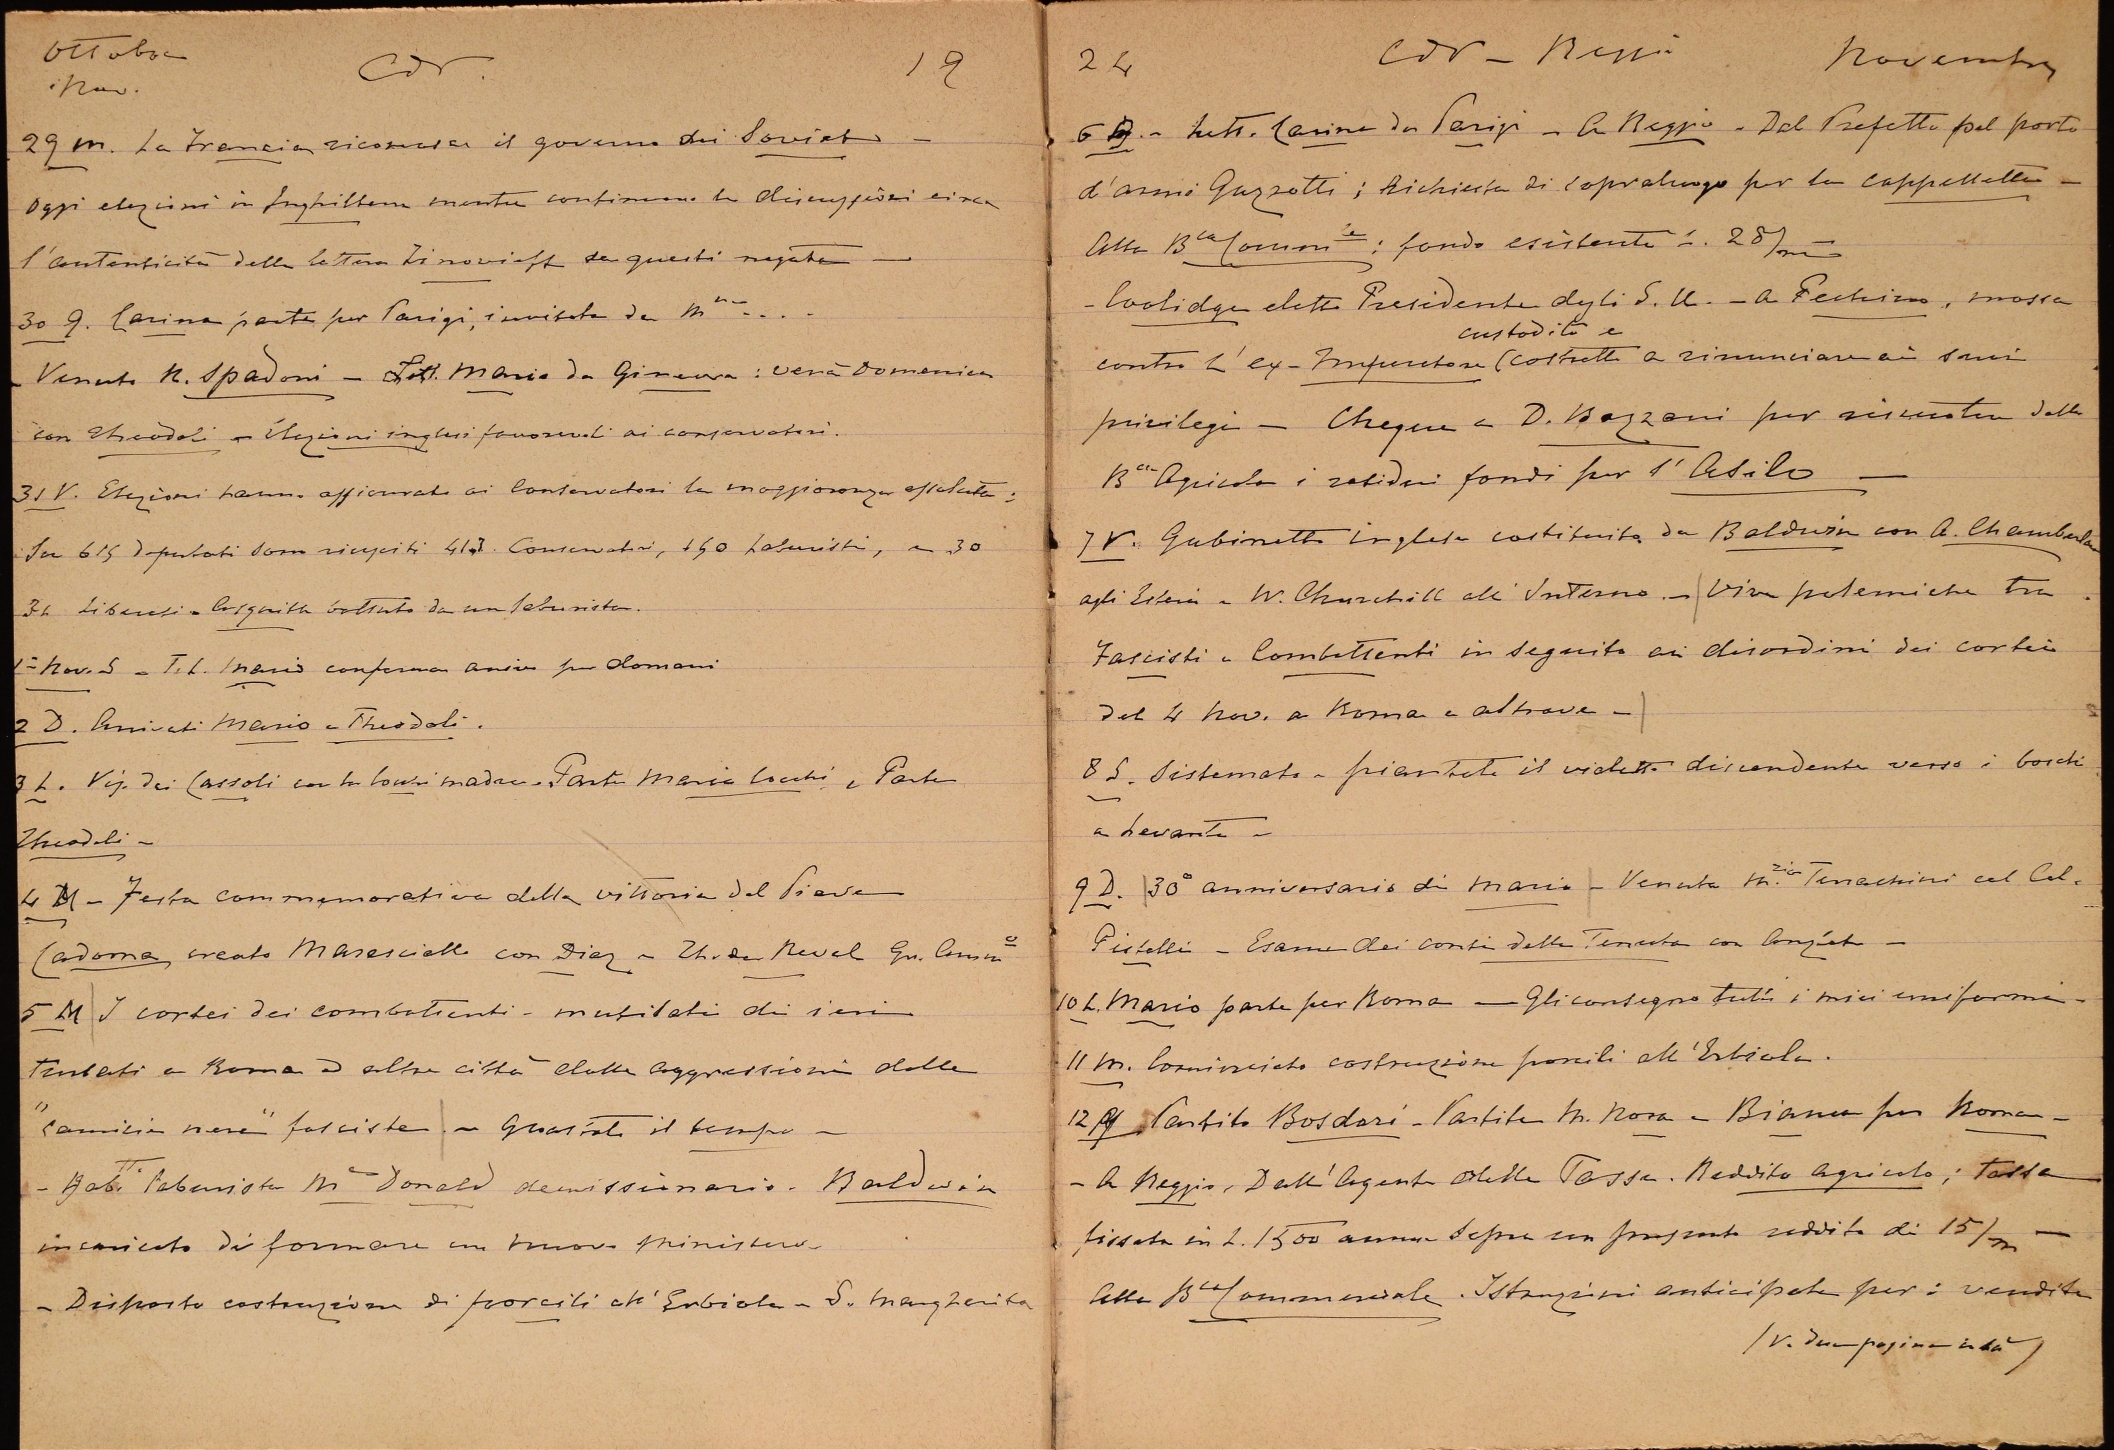 Ottobre
Nov.
CdV.
19
29 M. La Francia riconosce il governo dei Soviets -
Oggi elezioni in Inghilterra mentre continuano le discussioni circa
l'autenticità della lettera Zinovieff da questi negata -
30 G. Carina parte per Parigi, invitata da M
- Venuto R. Spadoni - Lett. Mario da Ginevra: verrà Domenica
con Theodoli - Elezioni inglesi favorevoli ai conservatori.
31 V. Elezioni hanno assicurato ai Conservatori la maggioranza assoluta:
Su 615 deputati sono riusciti 413 Conservatori, 150 Laburisti, e 30
Liberali - Asquith battuto da un laburista.
1° Nov. S - Tel. Mario conferma arrivo per domani
2 D. Arrivati Mario e Theodoli.
3 L. Vis. dei Cassoli con la loro madre - Parte Maria Cocchi, e Parte
Theodoli -
4 M - Festa commemorativa della vittoria del Piave
Cadorna creato Maresciallo con Diaz - Th. de Revel Gr. Amm°
5 M I cortei dei combattenti - mutilati di ieri
turbati a Roma ed altre città dalle aggressioni delle
"camicie nere" fasciste - Guastato il tempo -
- Gab.tto laburista Mac Donald demissionario. Baldwin
incaricato di formare un nuovo Ministero -
- Disposto costruzione di porcili all'Erbiola - S. Margherita
24
CdV - Reggio
Novembre
6 G. - Lett. Carina da Parigi - A Reggio - Dal Prefetto pel porto
d'armi Guzzotti; Richiesta di sopraluogo per la cappelletta -
Alla Bca Comm.le: fondo esistente L. 28/m -
- Coolidge eletto Presidente degli S. U. - A Pechino, mossa
custodito e
contro l'ex-Imperatore (costretto a rinunciare ai suoi
privilegi - Cheque a D. Bozzani per riscuotere dalla
Bca Agricola i residui fondi per l'Asilo -
7 V. Gabinetto inglese costituito da Baldwin con A. Chamberlain
agli Esteri e W. Churchill all'Interno. - Viva polemiche tra
Fascisti e Combattenti in seguito ai disordini dei cortei
del 4 Nov. a Roma e altrove -
8 S. Sistemato e piantato il vialetto discendente verso i boschi
a Levante -
9 D. 30° anniversario di Mario - Venuta M.zia Terrachini col Col.
Pistelli - Esame dei conti della Tenuta con
10 L. Mario parte per Roma - Gli consegno tutti i miei uniformi -
11 M. Cominciato costruzione porcili all'Erbiola.
12 M Partito Bosdari - Partite M. Nora e Bianca per Roma -
- A Reggio, Dall'Agente delle Tasse. Reddito agricolo; tassa
fissata in L. 1500 annue sopra un presunto reddito di 15/m -
Alla Bca Commerciale. Istruzioni anticipate per: vendita
(V. due pagine in là)